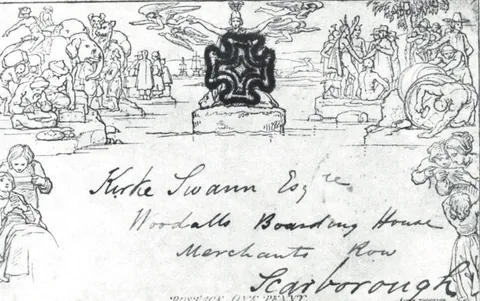 Kirke Swann Esqre
Woodalls Boarding House
Merchants Row
Scarborough
POSTAGE ONE PENNY